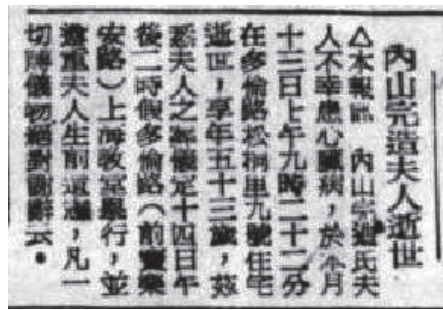 內山完造夫人逝世
△本報訊　內山完造氏夫
人不幸患心臟病，於本月
十三日上午九時二十二分
在多倫路松桐里九號住宅
逝世，享年五十三歲，茲
悉夫人之葬儀定十四日午
後二時假多倫路（前竇樂
安路）上海教堂舉行，並
遵重夫人生前遺志，凡一
切賻儀物絕對謝辭云。